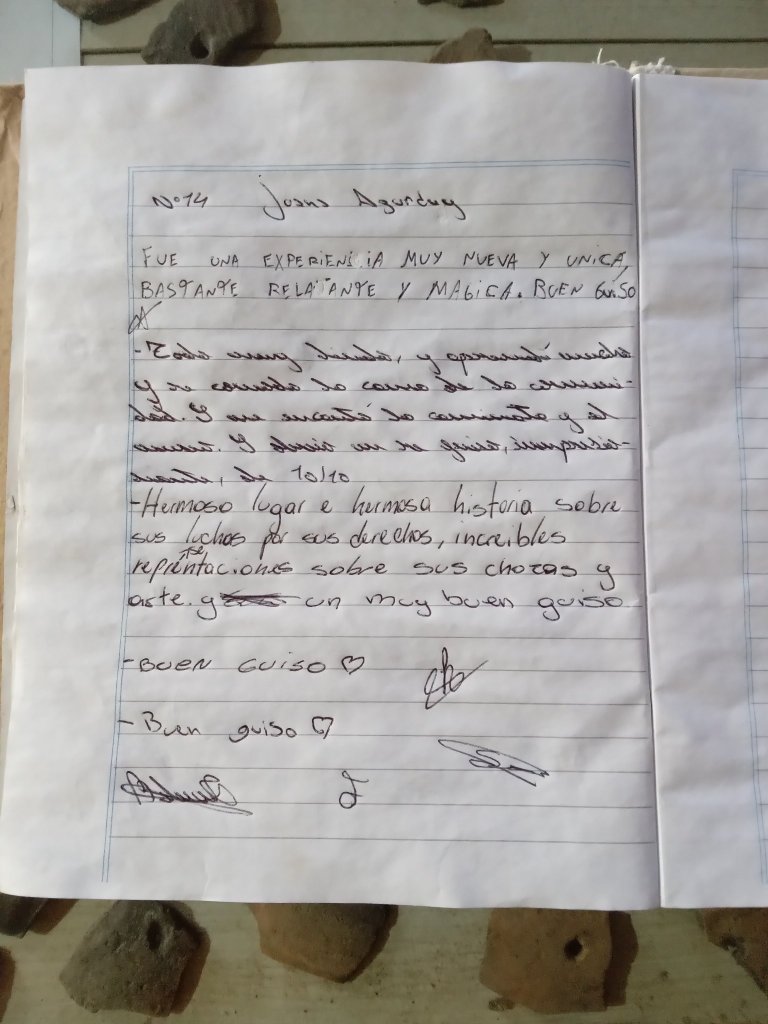 Nº14 Juana Azurduy
FUE UNA EXPERIENCIA MUY NUEVA Y UNICA,
BASTANTE RELAJANTE Y MAGICA. BUEN GUISO
-Todo muy lindo, y aprendí mucho
y se comeda lo como de la comuni-
dad. Y me encantó la caminata y el
museo. Y
10/10
-Hermoso lugar e hermosa historia sobre
sus luchas por sus derechos, increibles
representaciones sobre sus chozas y
arte. y un muy buen guiso
-BUEN GUISO ♡
-Buen guiso ♡